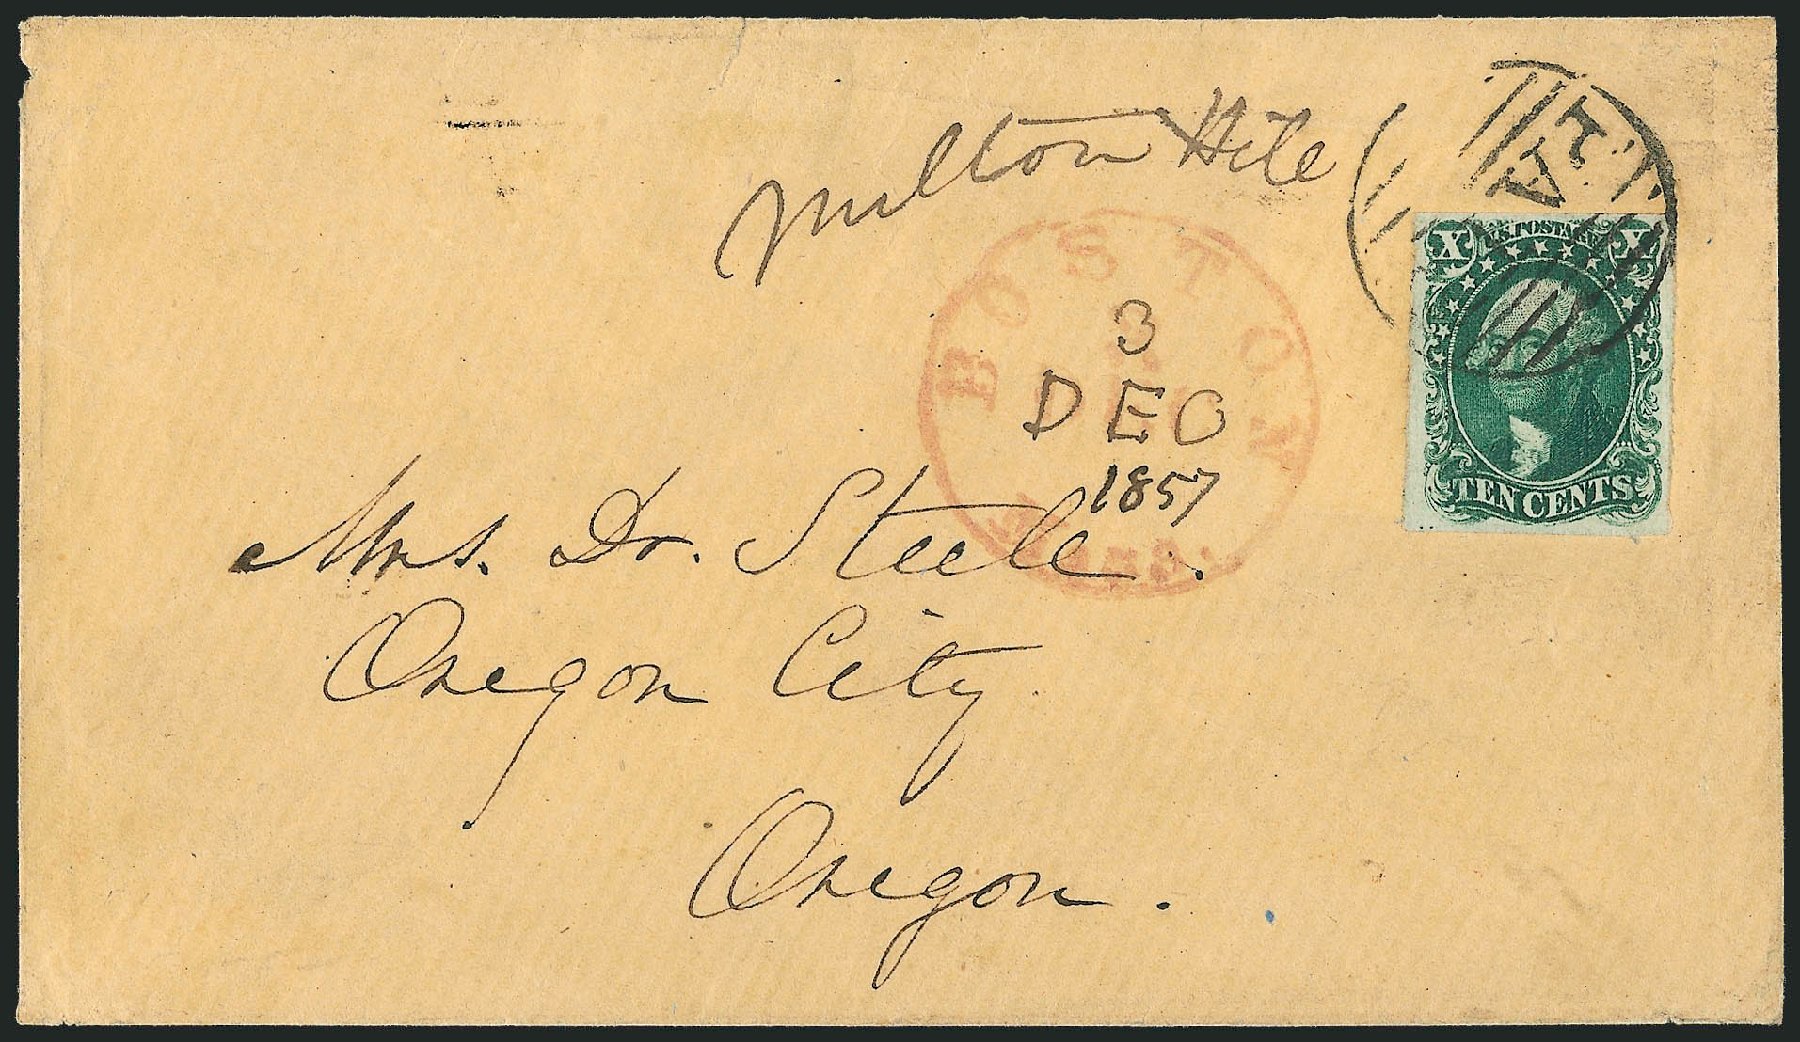 Milton Hile
PAI
X U.S. POSTAGE X
BOSTON
3
DEC
1857
TEN CENTS
Mrs. Dr. Steele.
Oregon City
Oregon.